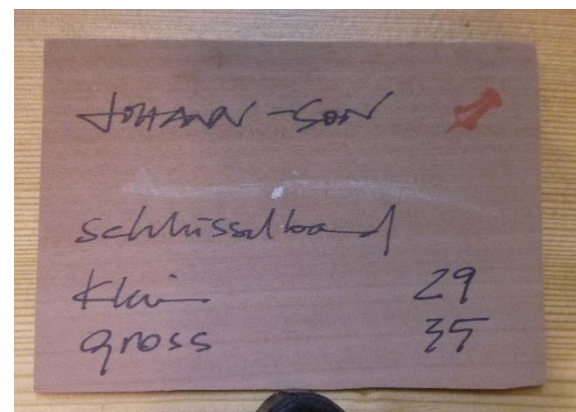 JOHANN-SON
Schlüsselband
Klein 29
gross 35